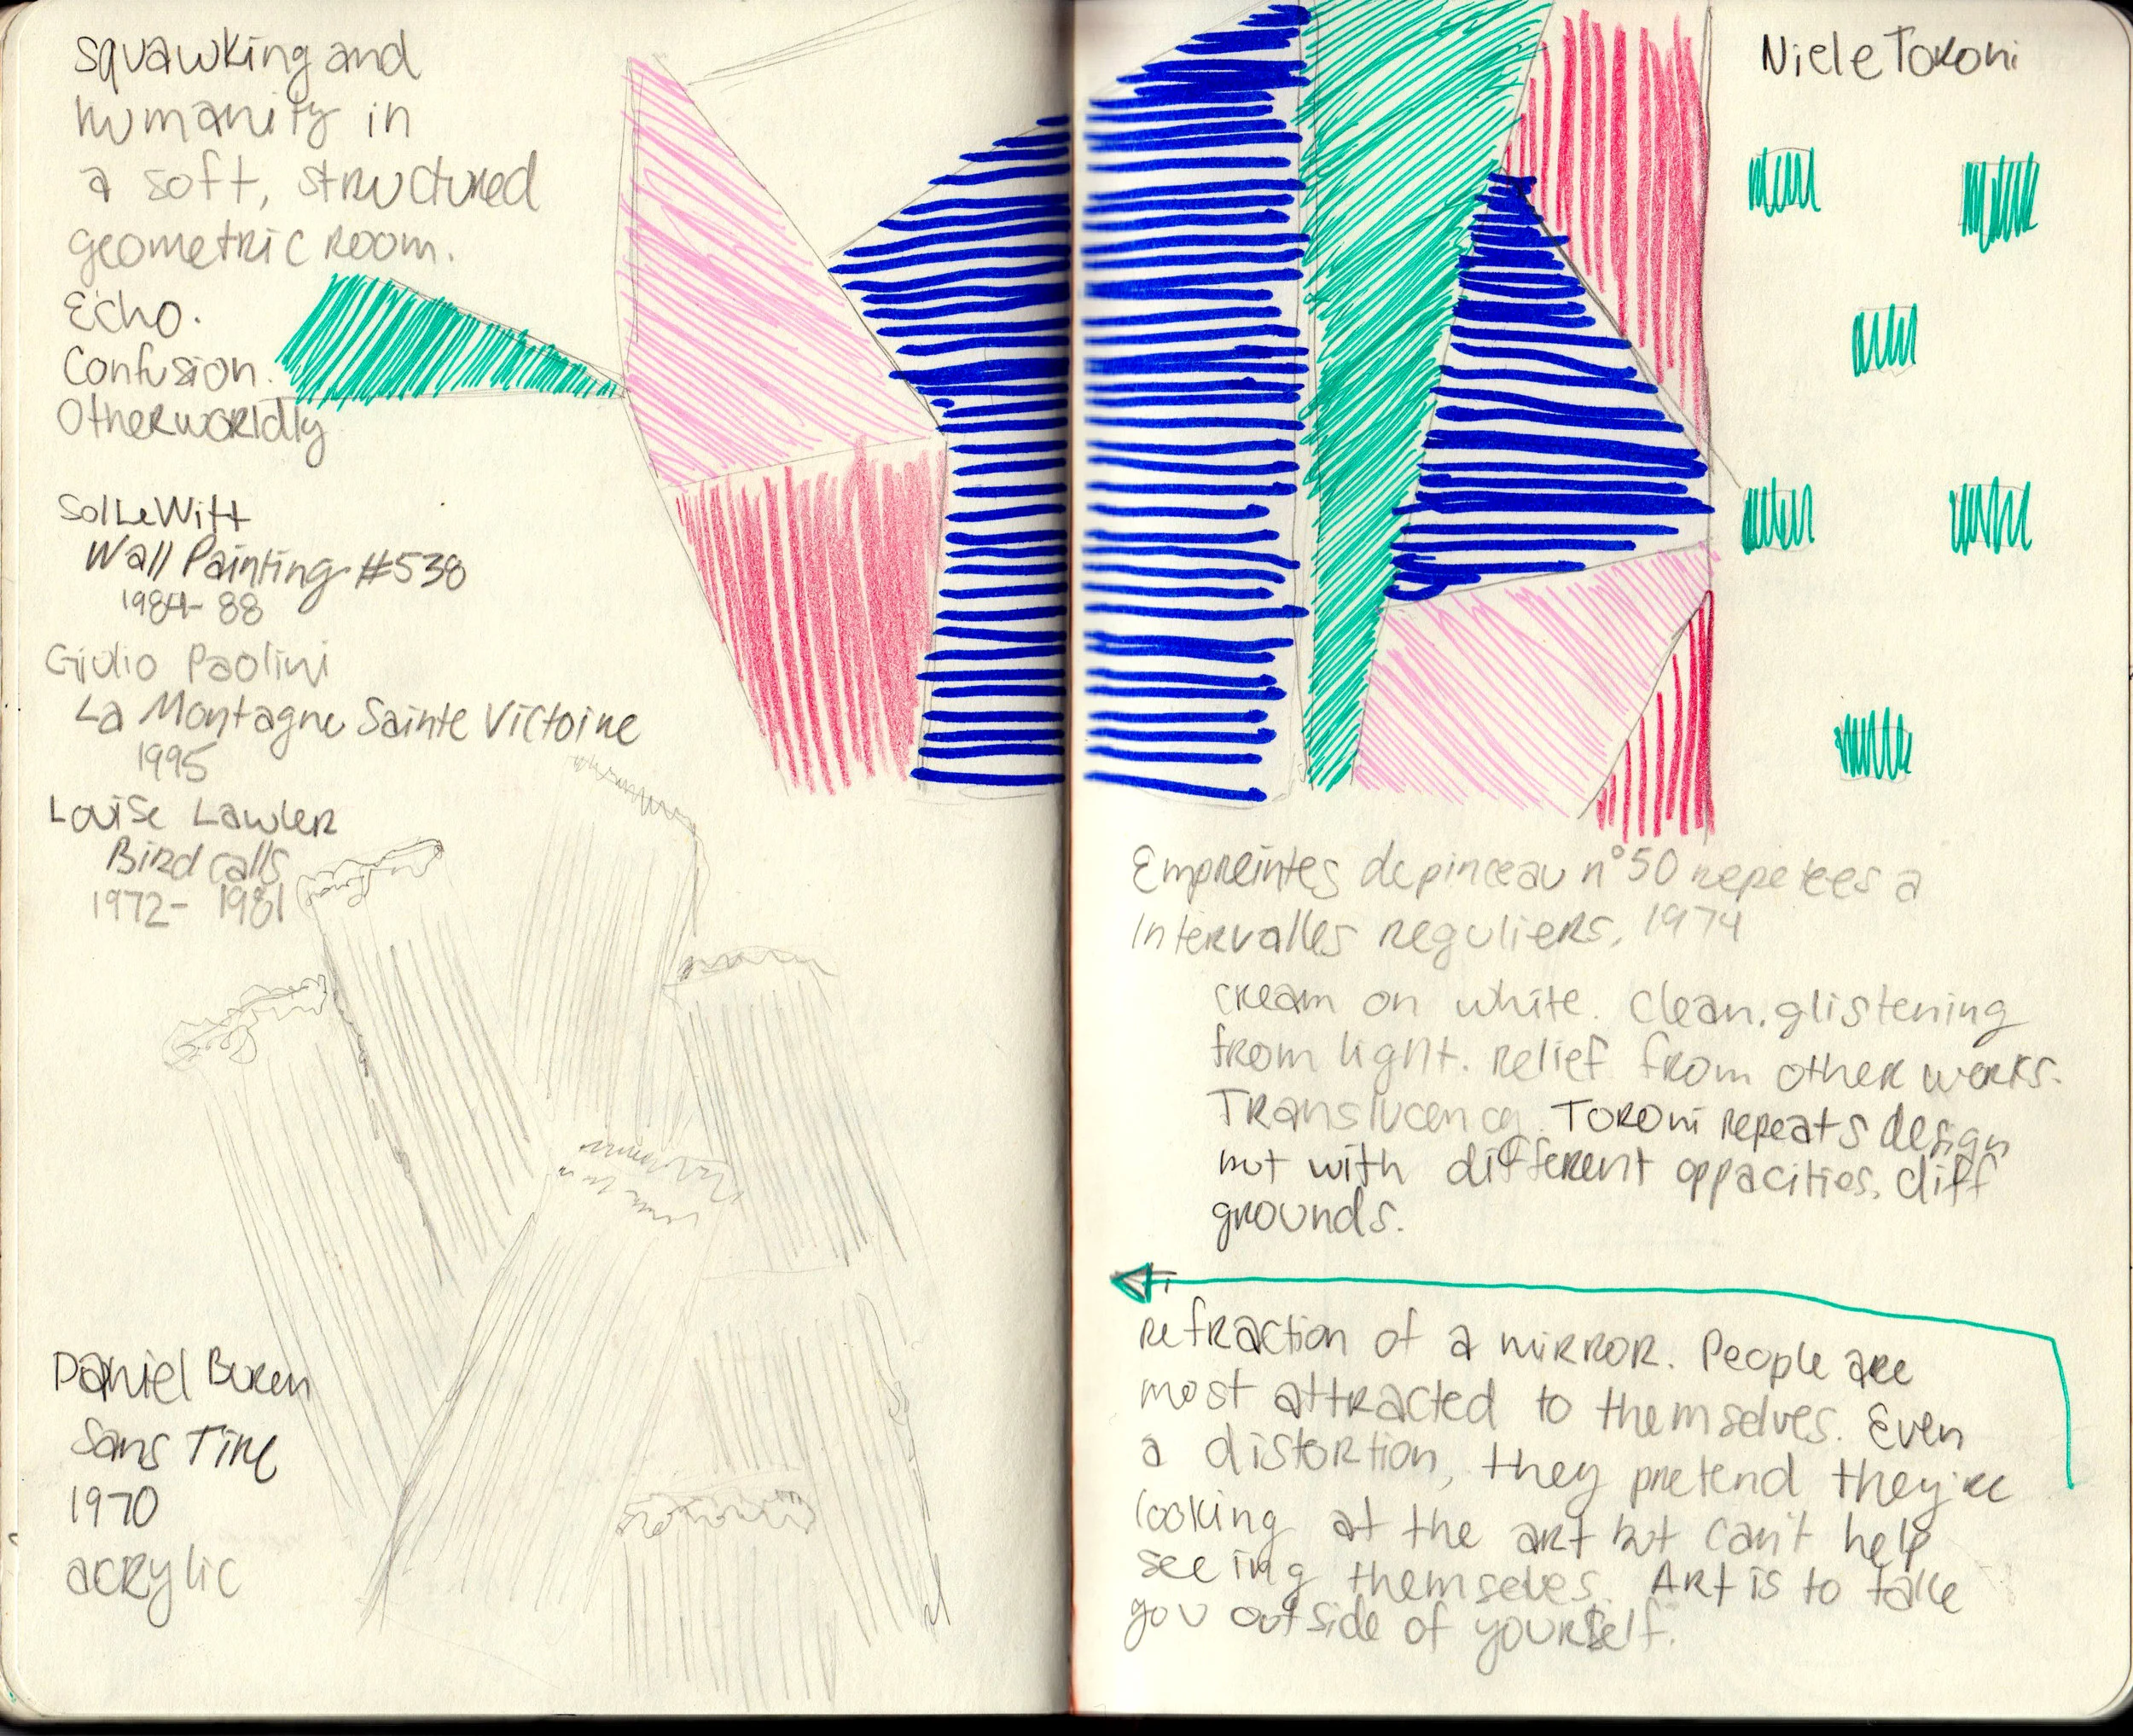 Squawking and
humanity in
a soft, structured
geometric room.
Echo.
Confusion.
Otherworldly
Sol LeWitt
Wall Painting #538
1984-88
Giulio Paolini
La Montagne Sainte Victoire
1995
Louise Lawler
Bird calls
1972- 1981
Daniel Buren
Sans Titre
1970
acrylic
Niele Toroni
Empreintes de pinceau n°50 repetees a
Intervalles reguliers, 1974
cream on white. Clean. glistening
from light. relief from other works.
Translucency. Toroni repeats design
but with different oppacities. diff
grounds.
refraction of a mirror. People are
most attracted to themselves. Even
a distortion, they pretend they're
looking at the art but can't help
seeing themselves. Art is to take
you outside of yourself.